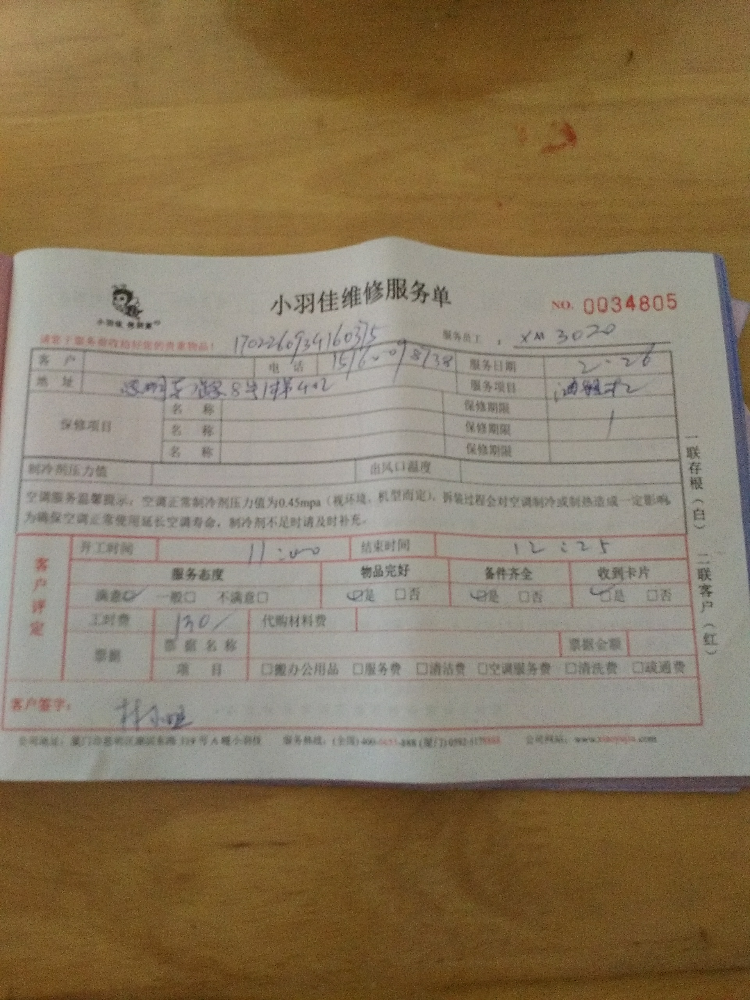 小羽佳维修服务单
NO. 0034805
小羽佳
请客户服务前收拾好您的贵重物品!
服务员工: XM 3020
客户 电话 服务日期 2.26
地址 8号 402 服务项目
保修项目 名称 保修期限
名称 保修期限
名称 保修期限
制冷剂压力值 出风口温度
空调服务温馨提示:空调正常制冷剂压力值为0.45mpa(视环境、机型而定),拆装过程会对空调制冷或制热造成一定影响,
为确保空调正常使用延长空调寿命,制冷剂不足时请及时补充。
一联存根(白) 二联客户(红)
客户评定
开工时间 11:00 结束时间 12:25
服务态度 物品完好 备件齐全 收到卡片
满意□ 一般□ 不满意□ □是 □否 □是 □否 □是 □否
工时费 130/ 代购材料费
票据 票据名称 票据金额
项目 □搬办公用品 □服务费 □清洁费 □空调服务费 □清洗费 □疏通费
客户签字:
公司地址: 服务热线:(全国)400- 公司网站:www.xiaoyujia.com